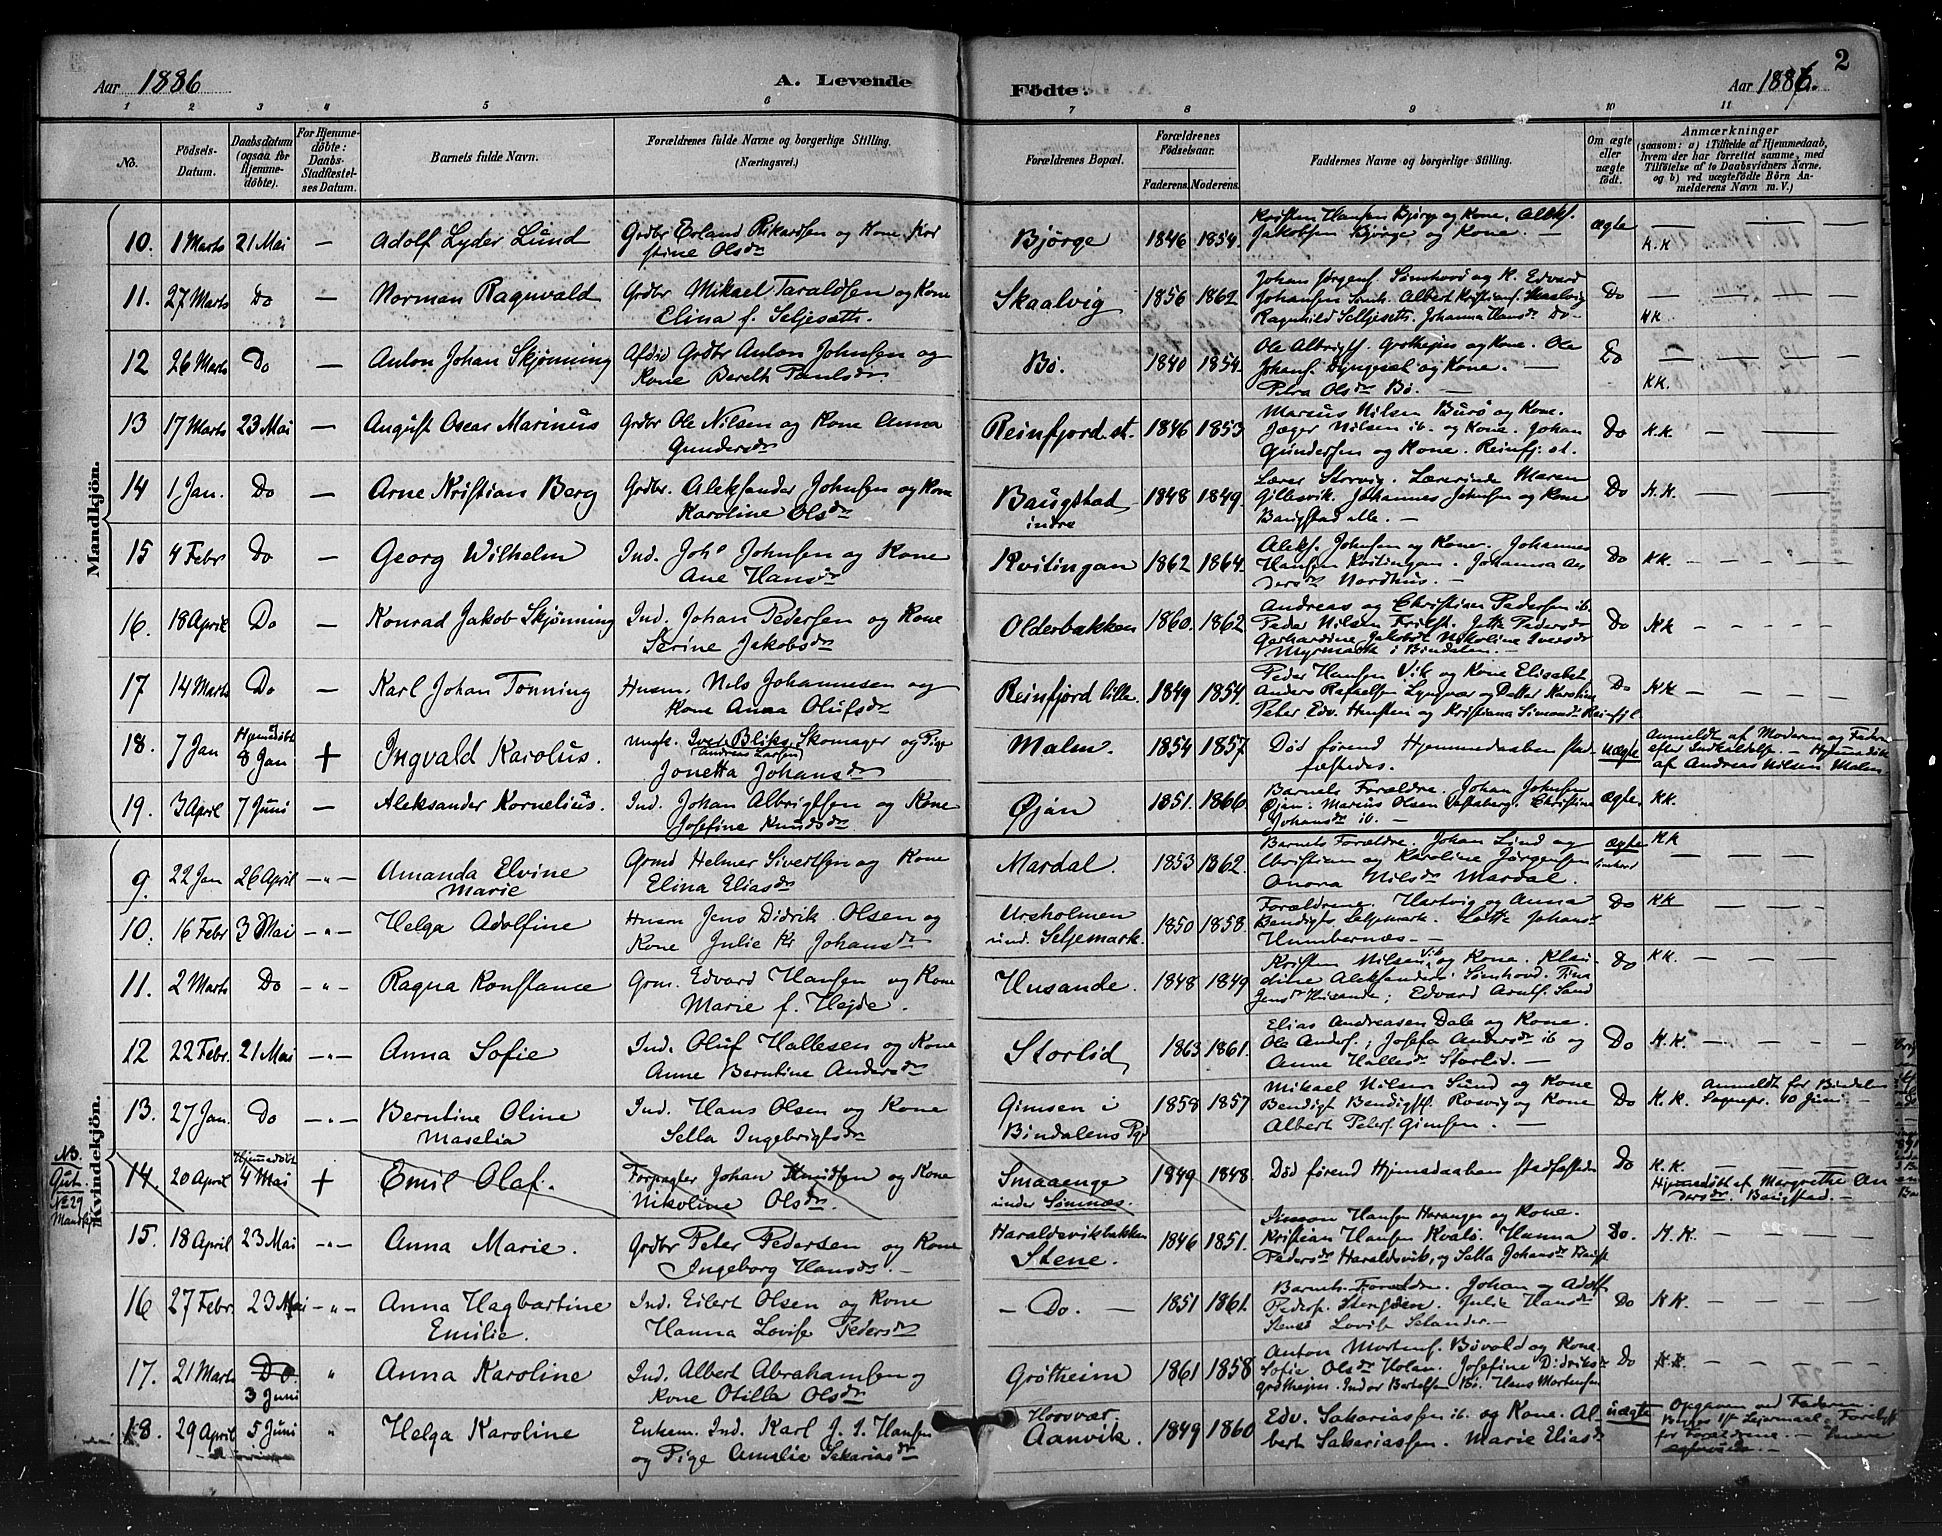 2
Aar 1886 A. Levende Födte. Aar 1886.
1 2 3 4 5 6 7 8 9 10 11
No. Födsels-Datum. Daabsdatum (ogsaa for Hjemmedöbte). For Hjemmedöbte: Daabs-Stadfæstelses Datum. Barnets fulde Navn. Forældrenes fulde Navne og borgerlige Stilling. (Næringsvei.) Forældrenes Bopæl. Forældrenes Födselsaar. Faderens. Moderens. Faddernes Navne og borgerlige Stilling. Om ægte eller uægte födt. Anmærkninger (saasom: a) i Tilfælde af Hjemmedaab, hvem der har forrettet samme, med Tilföielse af to Daabsvidners Navne, og b) ved uægtefödte Börn Anmelderens Navn m. V.)
Mandkjön.
10. 1 Marts 21 Mai — Adolf Lyder Lund Grdbr Erland Rikardsen og Kone Kirstine Olsdr Bjørge 1846 1854. Kristen Hansen Bjørge og Kone. Aleks. Jakobsen Bjørge og Kone. — ægte K.K — — —
11. 27 Marts Do — Norman Ragnvald Grdbr Mikael Taraldsen og Kone Elina f. Seljesæth. Skaalvig 1856 1862. Johan Jørgens. Sømhovd og K. Edvard Johansen Sømh. Albert Kristians. Skaalvig Ragnhild Seljeseth. Johanna Hansdr Do — Do KK — — —
12 26 Marts Do — Anton Johan Skjønning Grdbr Anton Johnsen og Kone Bereth Paulsdr. Bø. 1840 1854. Ole Albrigts. Grøtheim og Kone. Ole Johans. og Kone. — Petra Olsdr Bø. — Do KK. — — —
13 17 Marts 23 Mai — August Oscar Marinus Grdbr Ole Nilsen og Kone Anna Gundersdr Reinfjord st. 1846 1853 Marius Nilsen Burø og Kone. Jæger Nilsen ib. og Kone. Johan Gundersen og Kone. Reinfj. st. Do K.K. — — —
14 1 Jan. Do — Arne Kristian Berg Grdbr. Aleksander Johnsen og Kone Karoline Olsdr Baugstad indre 1848 1849. Lærer Storvig. Lærerinde Maren Gillesvik. Johannes Johnsen og Kone Baugstad alle. — Do K.K. — — —
15 4 Febr Do — Georg Wilhelm Ind. Johs Johnsen og Kone Ane Hansdr Kvitingan 1862 1864. Aleks. Johnsen og Kone. Johannes Hansen Kvitingan. Johanna Andersdr Nordhus. — Do KK. — — —
16. 18 April Do — Konrad Jakob Skjønning Ind. Johan Pedersen og Kone Serine Jakobsdr Olderbakken 1860. 1862 Andreas og Christian Pedersen ib. Peder Nilsen Jette Pedersdr Gerhardine Jakobsdr Nikoline Iversdr Myrmark i Bindalen. — Do KK - - - -
17 14 Marts Do — Karl Johan Tonning Husm. Nils Johannesen og Kone Anna Olufsdr Reinfjord lille. 1849 1854. Peder Hansen Vik og Kone Elisabet Anders Rafaelsen Lyngvær og Datter Karoline Peter Edv. og Kristiana Simonsdr Reinfj l Do KK — — —
18. 7 Jan Hjemmedøbt 8 Jan + Ingvald Karolus. Ungk. Iver Bliks. Andreas Larsen Skomager og Pige Jonetta Johansdr Malm. 1854 1857. Død førend Hjemmedaaben stadfæstedes. uægte Anmeldt af Moderen og Fader efter Indkaldelse. — Hjemmedøbt af Andreas Nilsen Malm
19. 3 April 7 Juni — Aleksander Kornelius. Ind. Johan Albrigtsen og Kone Josefine Knudsdr. Øjan 1851. 1866 Barnets Forældre. Johan Johnsen Øjan. Marius Olsen Christine Johansdr ib. — ægte KK.
Kvindekjön.
9. 22 Jan 26 April — „ — Amanda Elvine Marie Grmd Helmer Sivertsen og Kone Elina Eliasdr Mardal. 1853 1862. Barnets Forældre. Johan Lund og Christian og Karoline Jørgensen Onora Nilsdr Mardal. ægte KK — — —
10. 16 Febr 3 Mai — „ — Helga Adolfine Husm Jens Didrik Olsen og Kone Julie Kr Johansdr Ursholmen und. Seljemark. 1850 1858. Forældrene. Hartvig og Anna Bendigts. Seljemark. Lotte Johansdr Humbernæs — Do KK — — —
11. 2 Marts Do — „ — Ragna Konstance Grm. Edvard Hansen og Kone Marie f. Hejde. Husande. 1848 1849 Kristen Nilsen Vik og Kone. Klaudine Aleksandersd. Sømhovd. Tina Jensdr Husande; Edvard Arnts. Sand Do KK. — — —
12 22 Febr. 21 Mai — „ — Anna Sofie Ind. Oluf Hallesen og Kone Anne Berntine Andersdr Storlid 1863 1861. Elias Andreasen Dale og Kone. Ole Anders.; Josefa Andersdr ib og Anne Hallesdr Storlid. — Do K.K. — — —
13. 27 Jan. Do — „ — Berntine Oline Maselia Ind. Hans Olsen og Kone Sella Ingebrigtsdr Gimsen i Bindalens Pgd 1858 1857. Mikael Nilsen Lund og Kone Bendigt Bendigts. Rosvig og Kone Albert Peters. Gimsen. — Do K.K. Anmeldt for Bindalen Sognepr. 10 Juni —
NB. Gut. No 29 Mandkj
14. 20 April Hjemmedøbt 4 Mai + Emil Olaf. Forpagter Johan Knudsen og Kone Nikoline Olsdr. Smaaenge under Sømnæs. 1849 1848. Død førend Hjemmedaaben stadfæstedes Do K.K. Hjemmedøbt af Margrethe Andersdr. Baugstad. —
15. 18 April 23 Mai — „ — Anna Marie. Grdbr Peter Pedersen og Kone Ingeborg Hansdr. — Haraldsvikbakken Stene. 1846 1851. Simon Hansen Harangen og Kone. Kristian Hansen Kvalø. Hanna Pedersdr Haraldsvik, og Sella Johansdr Do. K.K. — — —
16 27 Febr. 23 Mai — „ — Anna Hagbartine Emilie. Ind. Eilert Olsen og Kone Hanna Lovise Pedersdr — Do. — 1851 1861. Barnets Forældre. Johan og Adolf Peders. Julie Hansdr Stene Lovise Selander. — Do KK. — — —
17. 21 Marts Do. 3 Juni „ Anna Karoline Ind. Albert Abrahamsen og Kone Otilla Olsdr Grøtheim 1861 1858 Anton Mortens. Bøvald og Kone. Sofie Olsdr Holan. Josefine Didriksdr Grøtheim. Indor Bertelsen Bø. Hans Mortensen Do K.K. — — —
18. 29 April 5 Juni „ Helga Karoline Enkem. Ind. Karl J. I. Hansen og Pige Amalie Sekariasdr Hoorsvæt Aanvik. 1849 1860 Edv. Sakariassen ib. og Kone. Albert Sakariassen. Marie Eliasdr uægte Opgiven ved Faderen. Lejermaal. for Forældrene. —